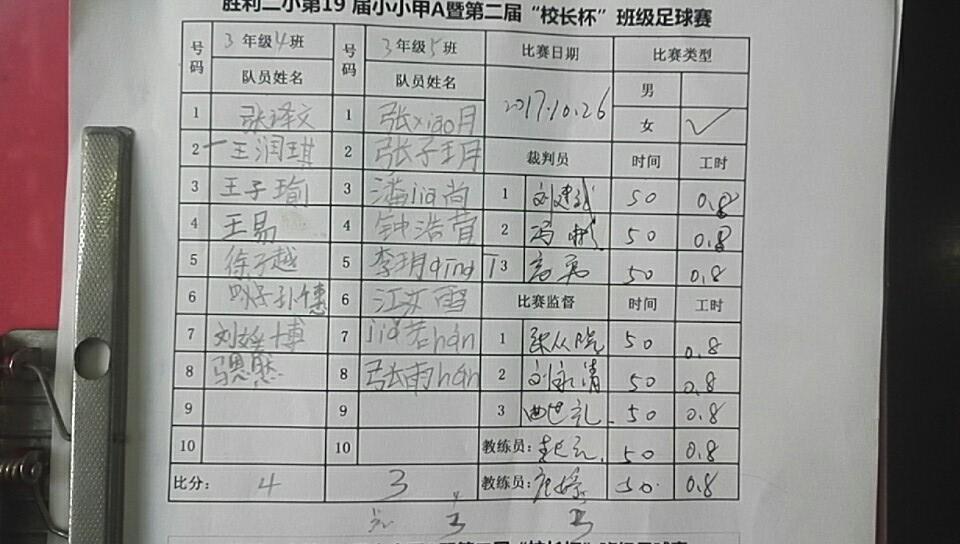 胜利二小第19届小小甲A暨第二届“校长杯”班级足球赛
号码 3年级4班 号码 3年级5班 比赛日期 比赛类型
队员姓名 队员姓名 2017.10.26 男
女 ✓
1 张译文 1 张xiao月
2 王润琪 2 张子玥 裁判员 时间 工时
3 王子瑜 3 潘jia尚 1 刘建 50 0.8
4 王易 4 钟浩萱 2 冯 50 0.8
5 徐子越 5 李玥qing 3 50 0.8
6 6 江亦雪 比赛监督 时间 工时
7 刘 博 7 jia若han 1 张从 50 0.8
8 8 张雨han 2 刘永清 50 0.8
9 9 3 曲世礼 50 0.8
10 10 教练员: 50 0.8
比分: 4 3 教练员: 50 0.8